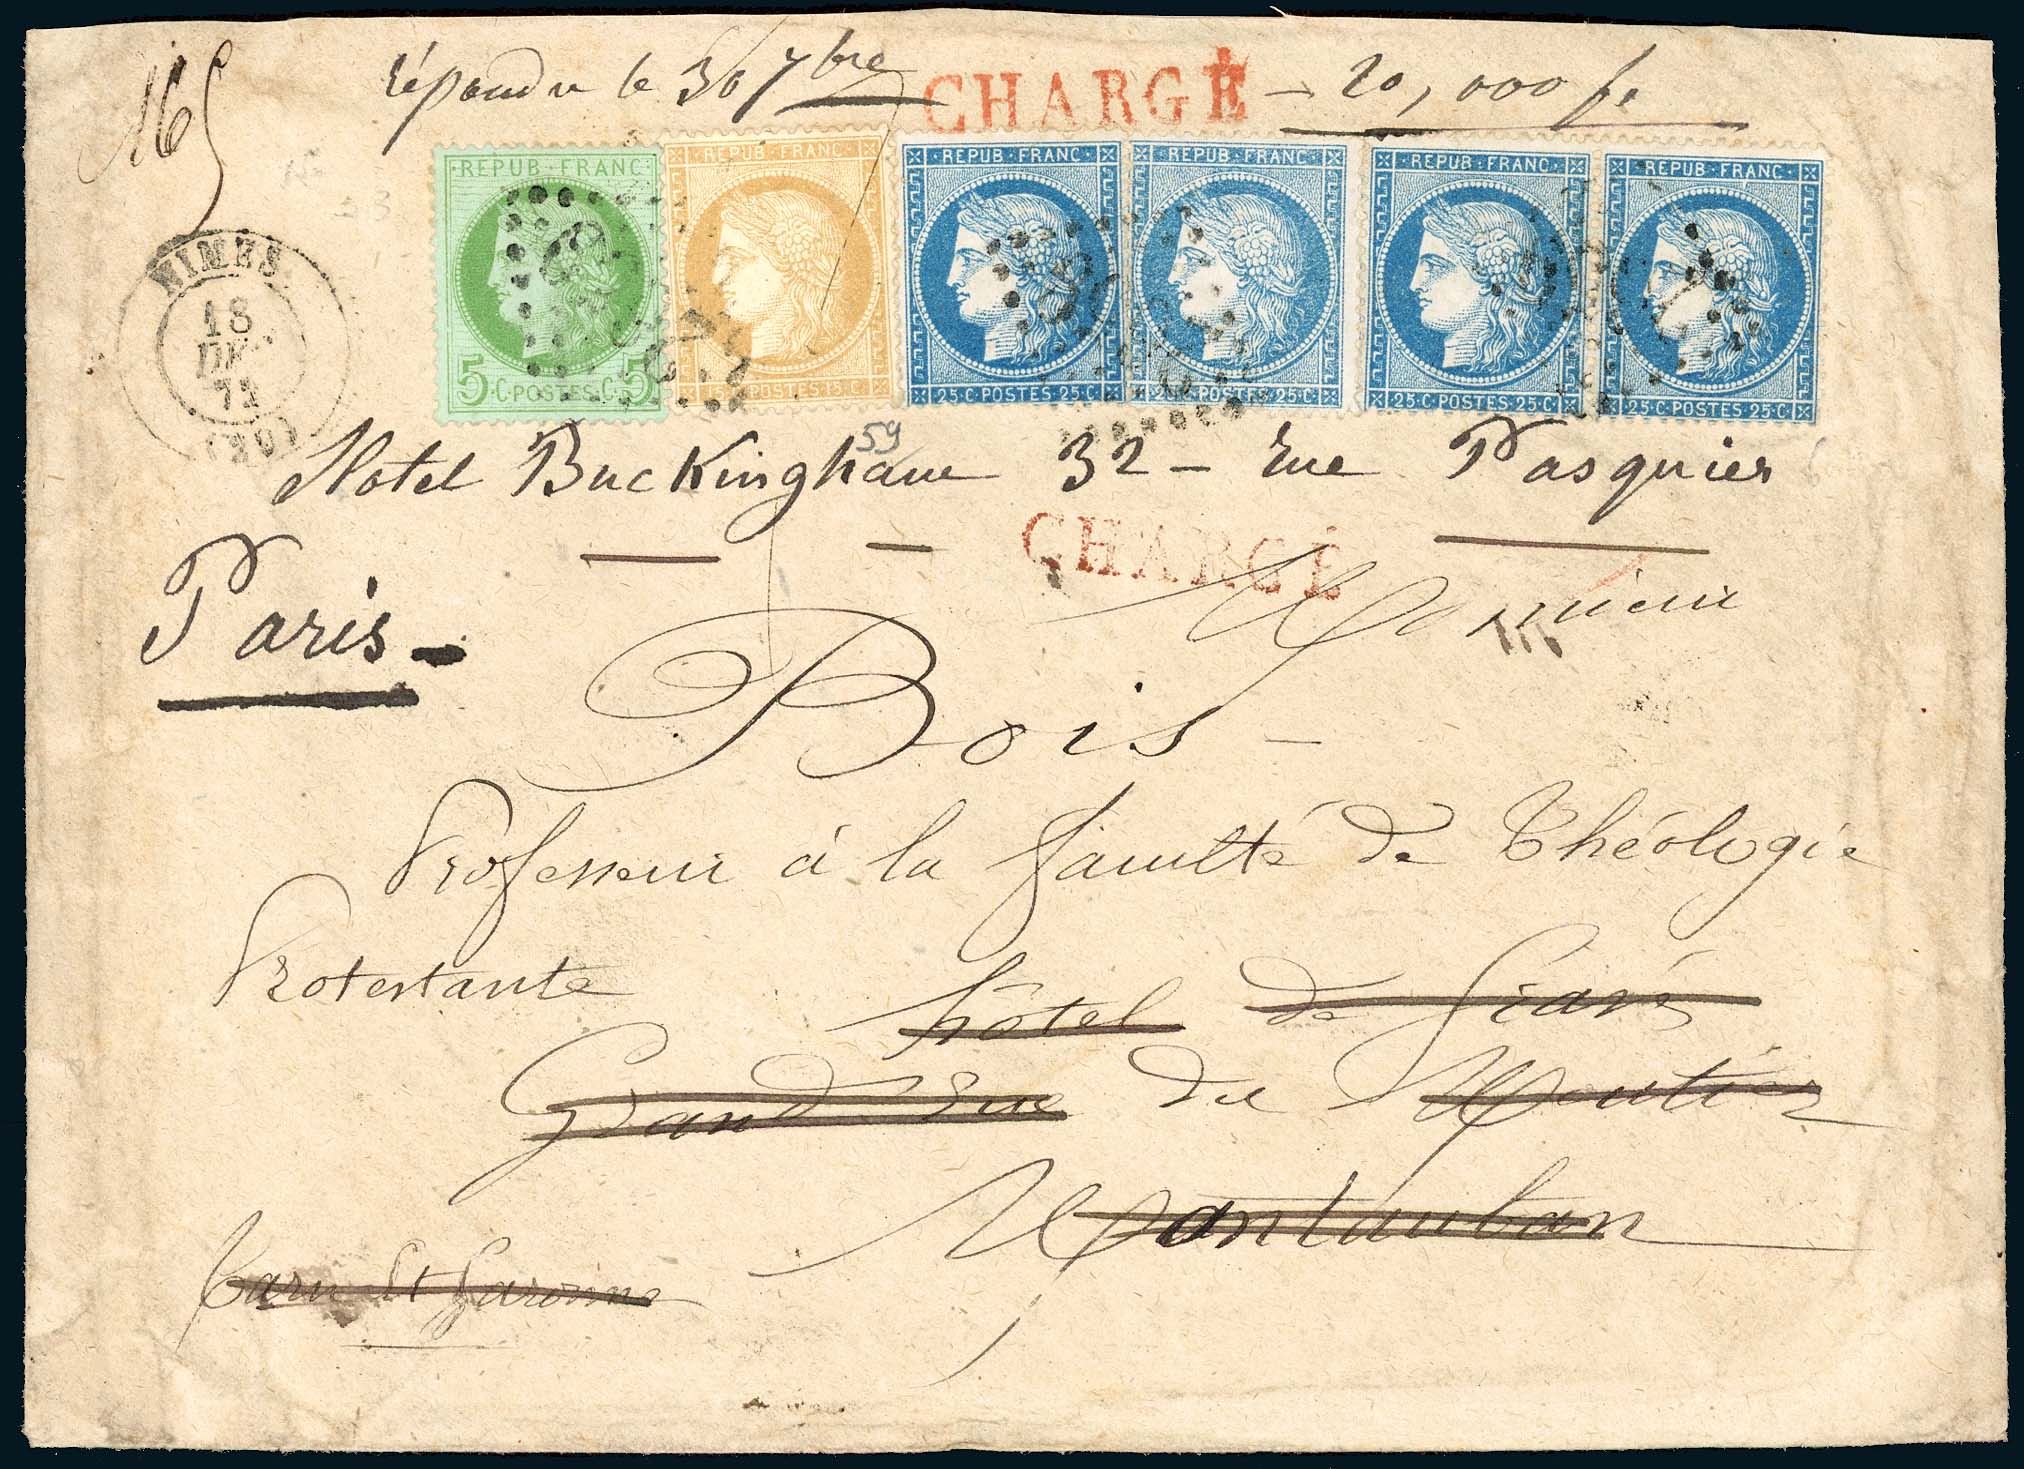 répondu le 30 7bre CHARGÉ - 20,000 f.
REPUB·FRANC REPUB·FRANC REPUB·FRANC· REPUB·FRANC· REPUB·FRANC· REPUB·FRANC·
5·C·POSTES·C·5 15·C·POSTES·15·C 25·C·POSTES·25·C· 25·C·POSTES·25·C· 25·C·POSTES·25·C· 25·C·POSTES·25·C·
NIMES
18
DEC.
72
59
Hotel Buckingham 32 - rue Pasquier
CHARGÉ
Paris -
Monsieur
Bois -
Professeur à la faculté de Théologie
Protestante hôtel de
Grand rue du Moutier
Montauban
Tarn et Garonne